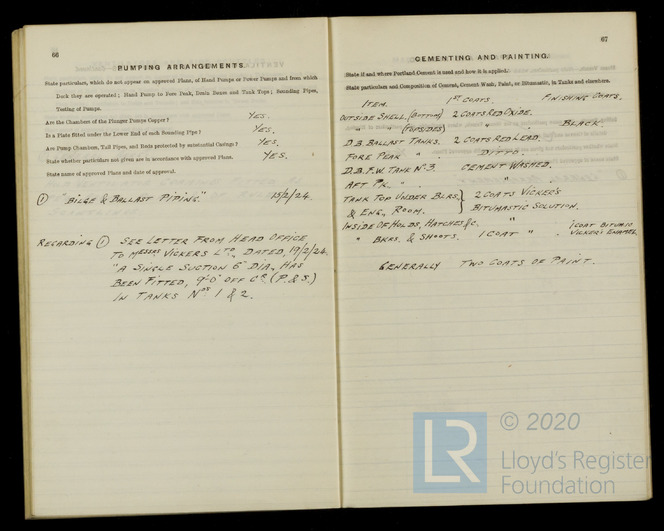 66
PUMPING ARRANGEMENTS.
State particulars, which do not appear on approved Plans, of Hand Pumps or Power Pumps and from which
Deck they are operated; Hand Pump to Fore Peak, Drain Boxes and Tank Tops; Sounding Pipes,
Testing of Pumps.
Are the Chambers of the Plunger Pumps Copper? YES.
Is a Plate fitted under the Lower End of each Sounding Pipe? YES.
Are Pump Chambers, Tail Pipes, and Rods protected by substantial Casings? YES.
State whether particulars not given are in accordance with approved Plans. YES.
State name of approved Plans and date of approval.
① "BILGE & BALLAST PIPING" 15/2/24.
REGARDING ① SEE LETTER FROM HEAD OFFICE
TO MESSRS VICKERS LTD, DATED, 19/2/24.
"A SINGLE SUCTION 6" DIA., HAS
BEEN FITTED, 9'-0" OFF CR (P.&S.)
IN TANKS NOS 1 & 2.
67
CEMENTING AND PAINTING.
State if and where Portland Cement is used and how it is applied.
State particulars and Composition of Cement, Cement Wash, Paint, or Bitumastic, in Tanks and elsewhere.
ITEM. 1ST COATS. FINISHING COATS.
OUTSIDE SHELL, (BOTTOM) 2 COATS RED OXIDE.
" " (TOPSIDES) " . BLACK
D.B. BALLAST TANKS. 2 COATS RED LEAD.
FORE PEAK " . DITTO.
D.B.F.W. TANK Nº3. CEMENT WASHED.
AFT PK. " . " .
TANK TOP UNDER BLRS. } 2 COATS VICKER'S
& ENG. ROOM. BITUMASTIC SOLUTION.
INSIDE OF HOLDS, HATCHES &C. " 1 COAT BITUMIC
" BKRS. & SHOOTS. 1 COAT " . VICKER'S ENAMEL.
GENERALLY TWO COATS OF PAINT.
LR
© 2020
Lloyd's Register
Foundation